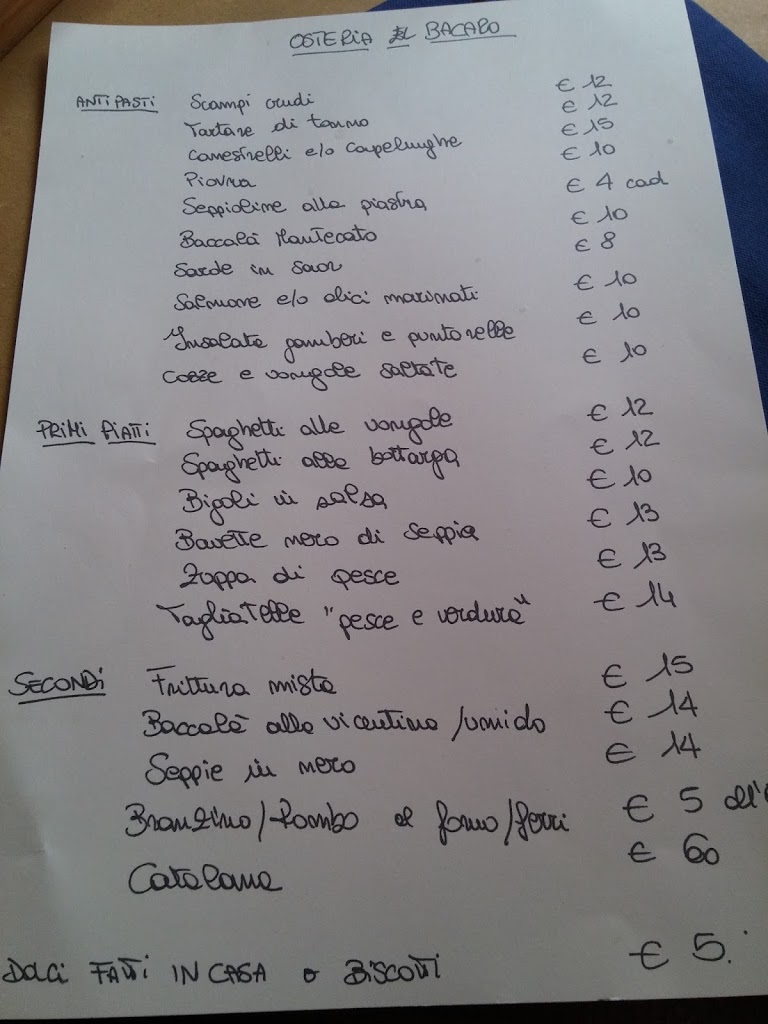 OSTERIA EL BACARO
ANTIPASTI Scampi crudi € 12
Tartare di tonno € 12
Canestrelli e/o Capelunghe € 15
Piovra € 10
Seppioline alla piastra € 4 cad
Baccalà Mantecato € 10
Sarde in saor € 8
Salmone e/o alici marinati € 10
Insalata gamberi e puntarelle € 10
Cozze e vongole saltate € 10
PRIMI PIATTI Spaghetti alle vongole € 12
Spaghetti alla bottarga € 12
Bigoli in salsa € 10
Bavette nero di seppia € 13
Zuppa di pesce € 13
Tagliatelle "pesce e verdura" € 14
SECONDI Frittura mista € 15
Baccalà alla vicentina / umido € 14
Seppie in nero € 14
Branzino/Rombo al forno/ferri € 5 all'
Catalana € 60
DOLCI FATTI IN CASA o BISCOTTI € 5.